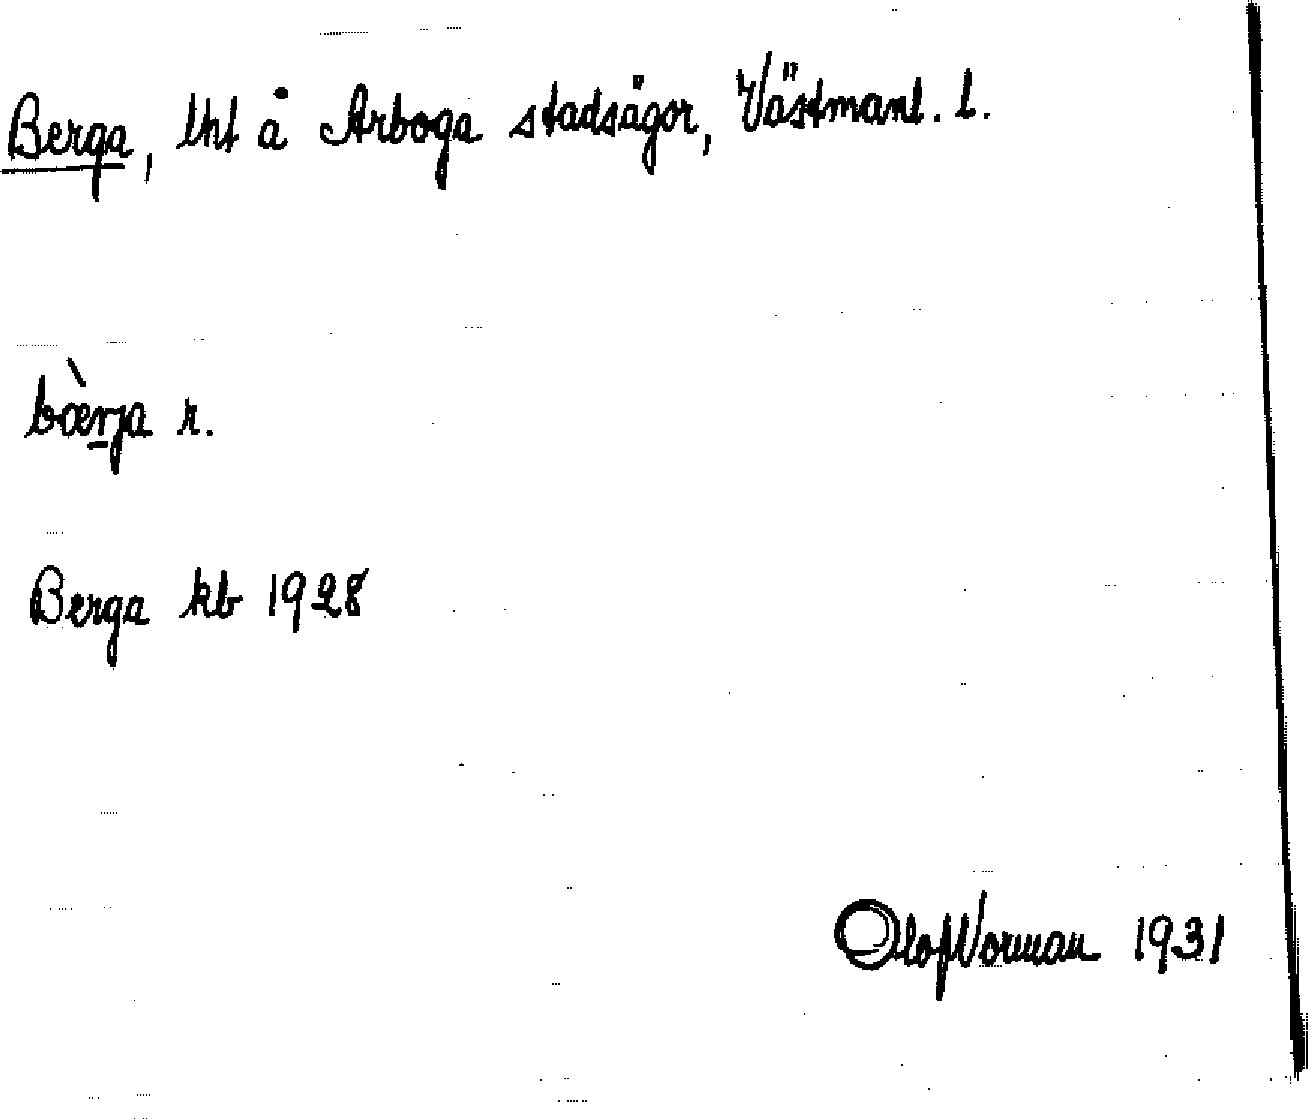 Berga, lht å Arboga stadsägor, Västmanl. l.
bæ̀rja r.
Berga kb 1928
Olof Norman 1931